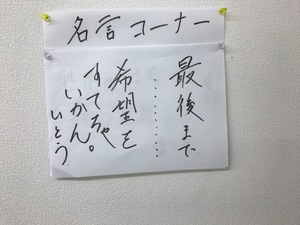 名言コーナー
最後まで
………
希望を
すてちゃ
いかん。
いとう